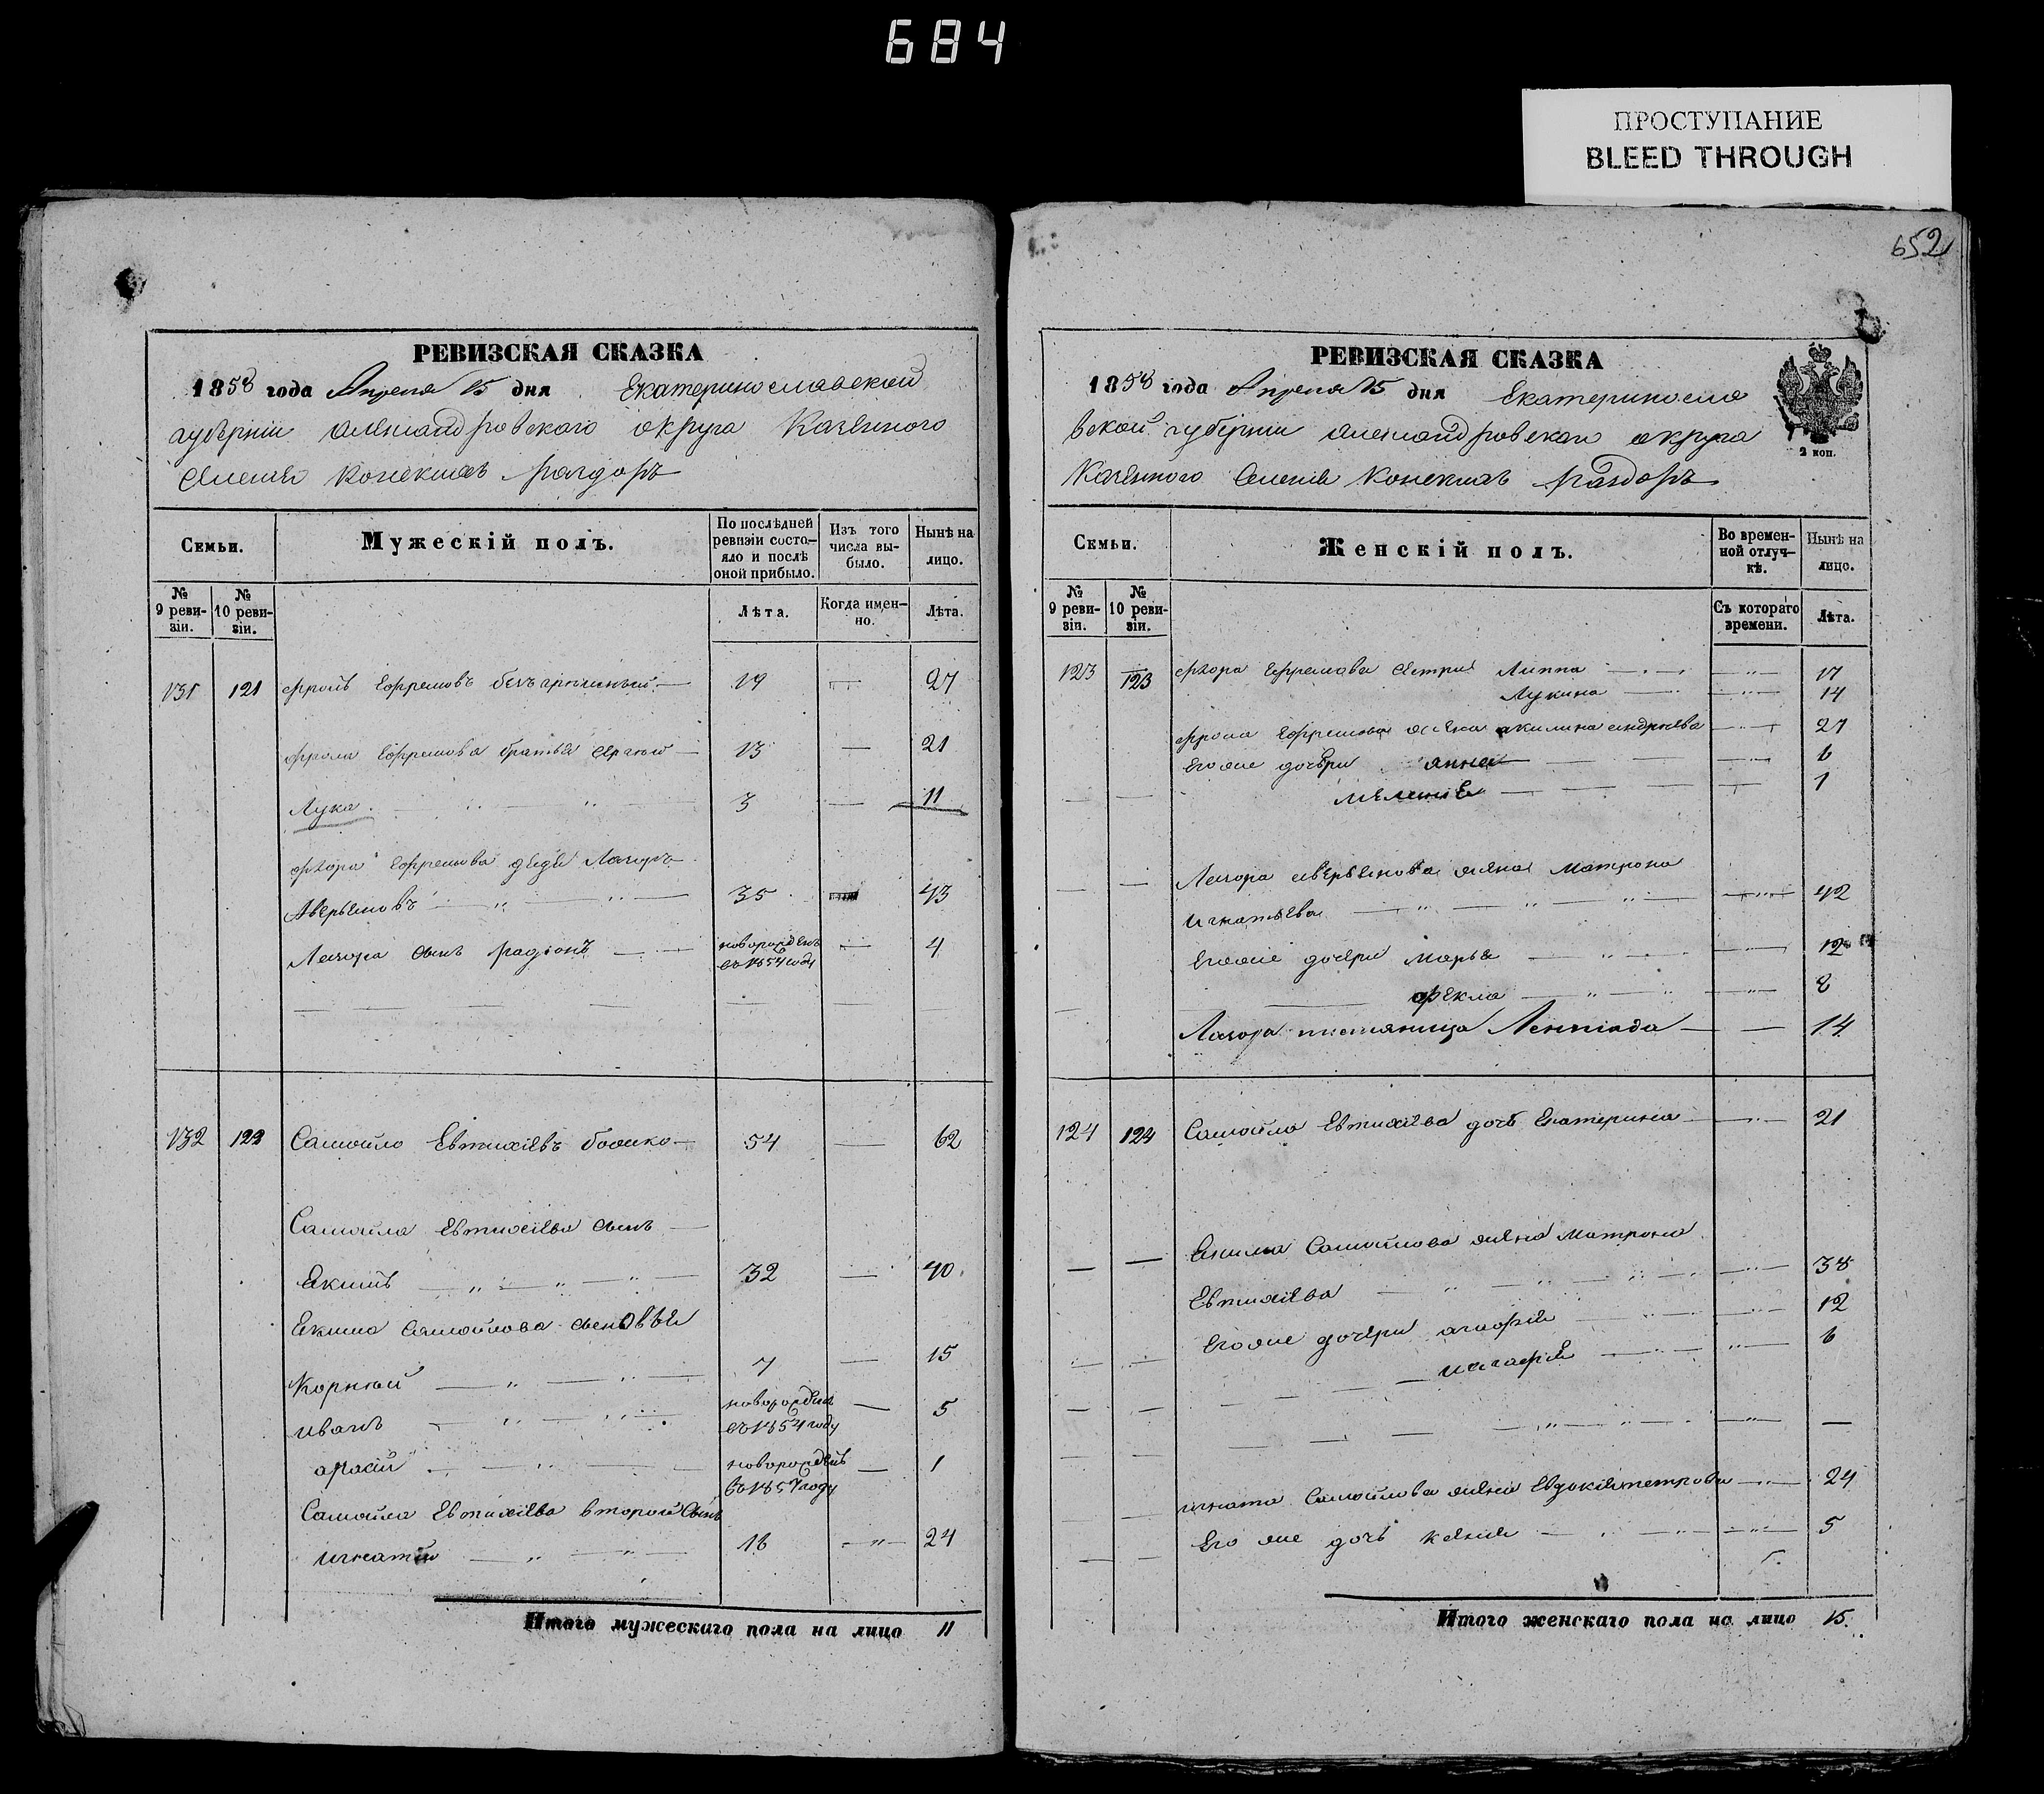 684
ПРОСТУПАНИЕ
BLEED THROUGH
652
РЕВИЗСКАЯ СКАЗКА
1858 года Апреля 15 дня Екатеринославской
губерніи Александровскаго округа Казенного
Селенія Конскихъ Раздоръ
Семьи.
Мужескій полъ.
По послѣдней ревизіи состояло и послѣ оной прибыло.
Изъ того числа выбыло.
Нынѣ на лицо.
№ 9 ревизіи.
№ 10 ревизіи.
Лѣта.
Когда именно.
Лѣта.
131 121 Фролъ Ефремовъ — 19 — 27
Фрола Ефремова братья Сергей — 13 — 21
Лука — 3 — 11
Ефремова дядя Лазоръ
Аверьяновъ — 35 — 43
Лазора сынъ Радіонъ — новорожденъ въ 1854 году — 4
132 122 Самойло Евтихіевъ Бойко — 54 — 62
Самойла Евтихіева сынъ —
Екимъ — 32 — 40
Екима Самойлова сыновья
Корней — 7 — 15
Иванъ — новорожденъ въ 1854 году — 5
— новорожденъ въ 1857 году — 1
Самойла Евтихіева второй сынъ
Игнатій — 16 — 24
Итого мужескаго пола на лицо 11
РЕВИЗСКАЯ СКАЗКА
1858 года Апреля 15 дня Екатериносла
вской губерніи Александровскаго округа
Казенного Селенія Конскихъ Раздоръ
2 коп.
Семьи.
Женскій полъ.
Во временной отлучкѣ.
Нынѣ на лицо.
№ 9 ревизіи.
№ 10 ревизіи.
Съ котораго времени.
Лѣта.
123 123 Ефремова сестры — 17
Лукина — 14
Фрола Ефремова жена Акилина Андреева — 27
Его же дочери Анна — 6
Меланія — 1
Лазора Аверьянова жена Матрона
Игнатьева — 42
Его же дочери Марья — 12
Фекла — 8
Лазора племянница — 14
124 124 Самойла Евтихіева дочь Екатерина — 21
Екима Самойлова жена Матрона
Евтихіева — 38
Его же дочери Агафія — 12
— 6
Игната Самойлова жена Евдокія Петрова — 24
Его же дочь Ксенія — 5
Итого женскаго пола на лицо 15.